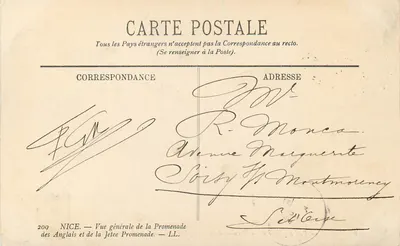 CARTE POSTALE
Tous les Pays étrangers n'acceptent pas la Correspondance au recto.
(Se renseigner à la Poste).
CORRESPONDANCE
ADRESSE
Mr
R. Monca
Avenue Marguerite
Soisy s/ Montmorency
200 NICE. — Vue générale de la Promenade
des Anglais et de la Jetée Promenade. — LL.